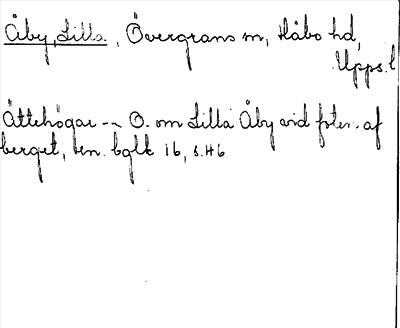 Åby, Lilla, Övergrans sn, Håbo hd,
Upps. l
Ättehögar -- O. om Lilla Åby vid foten af
berget, ben. bglk 16, s. 46